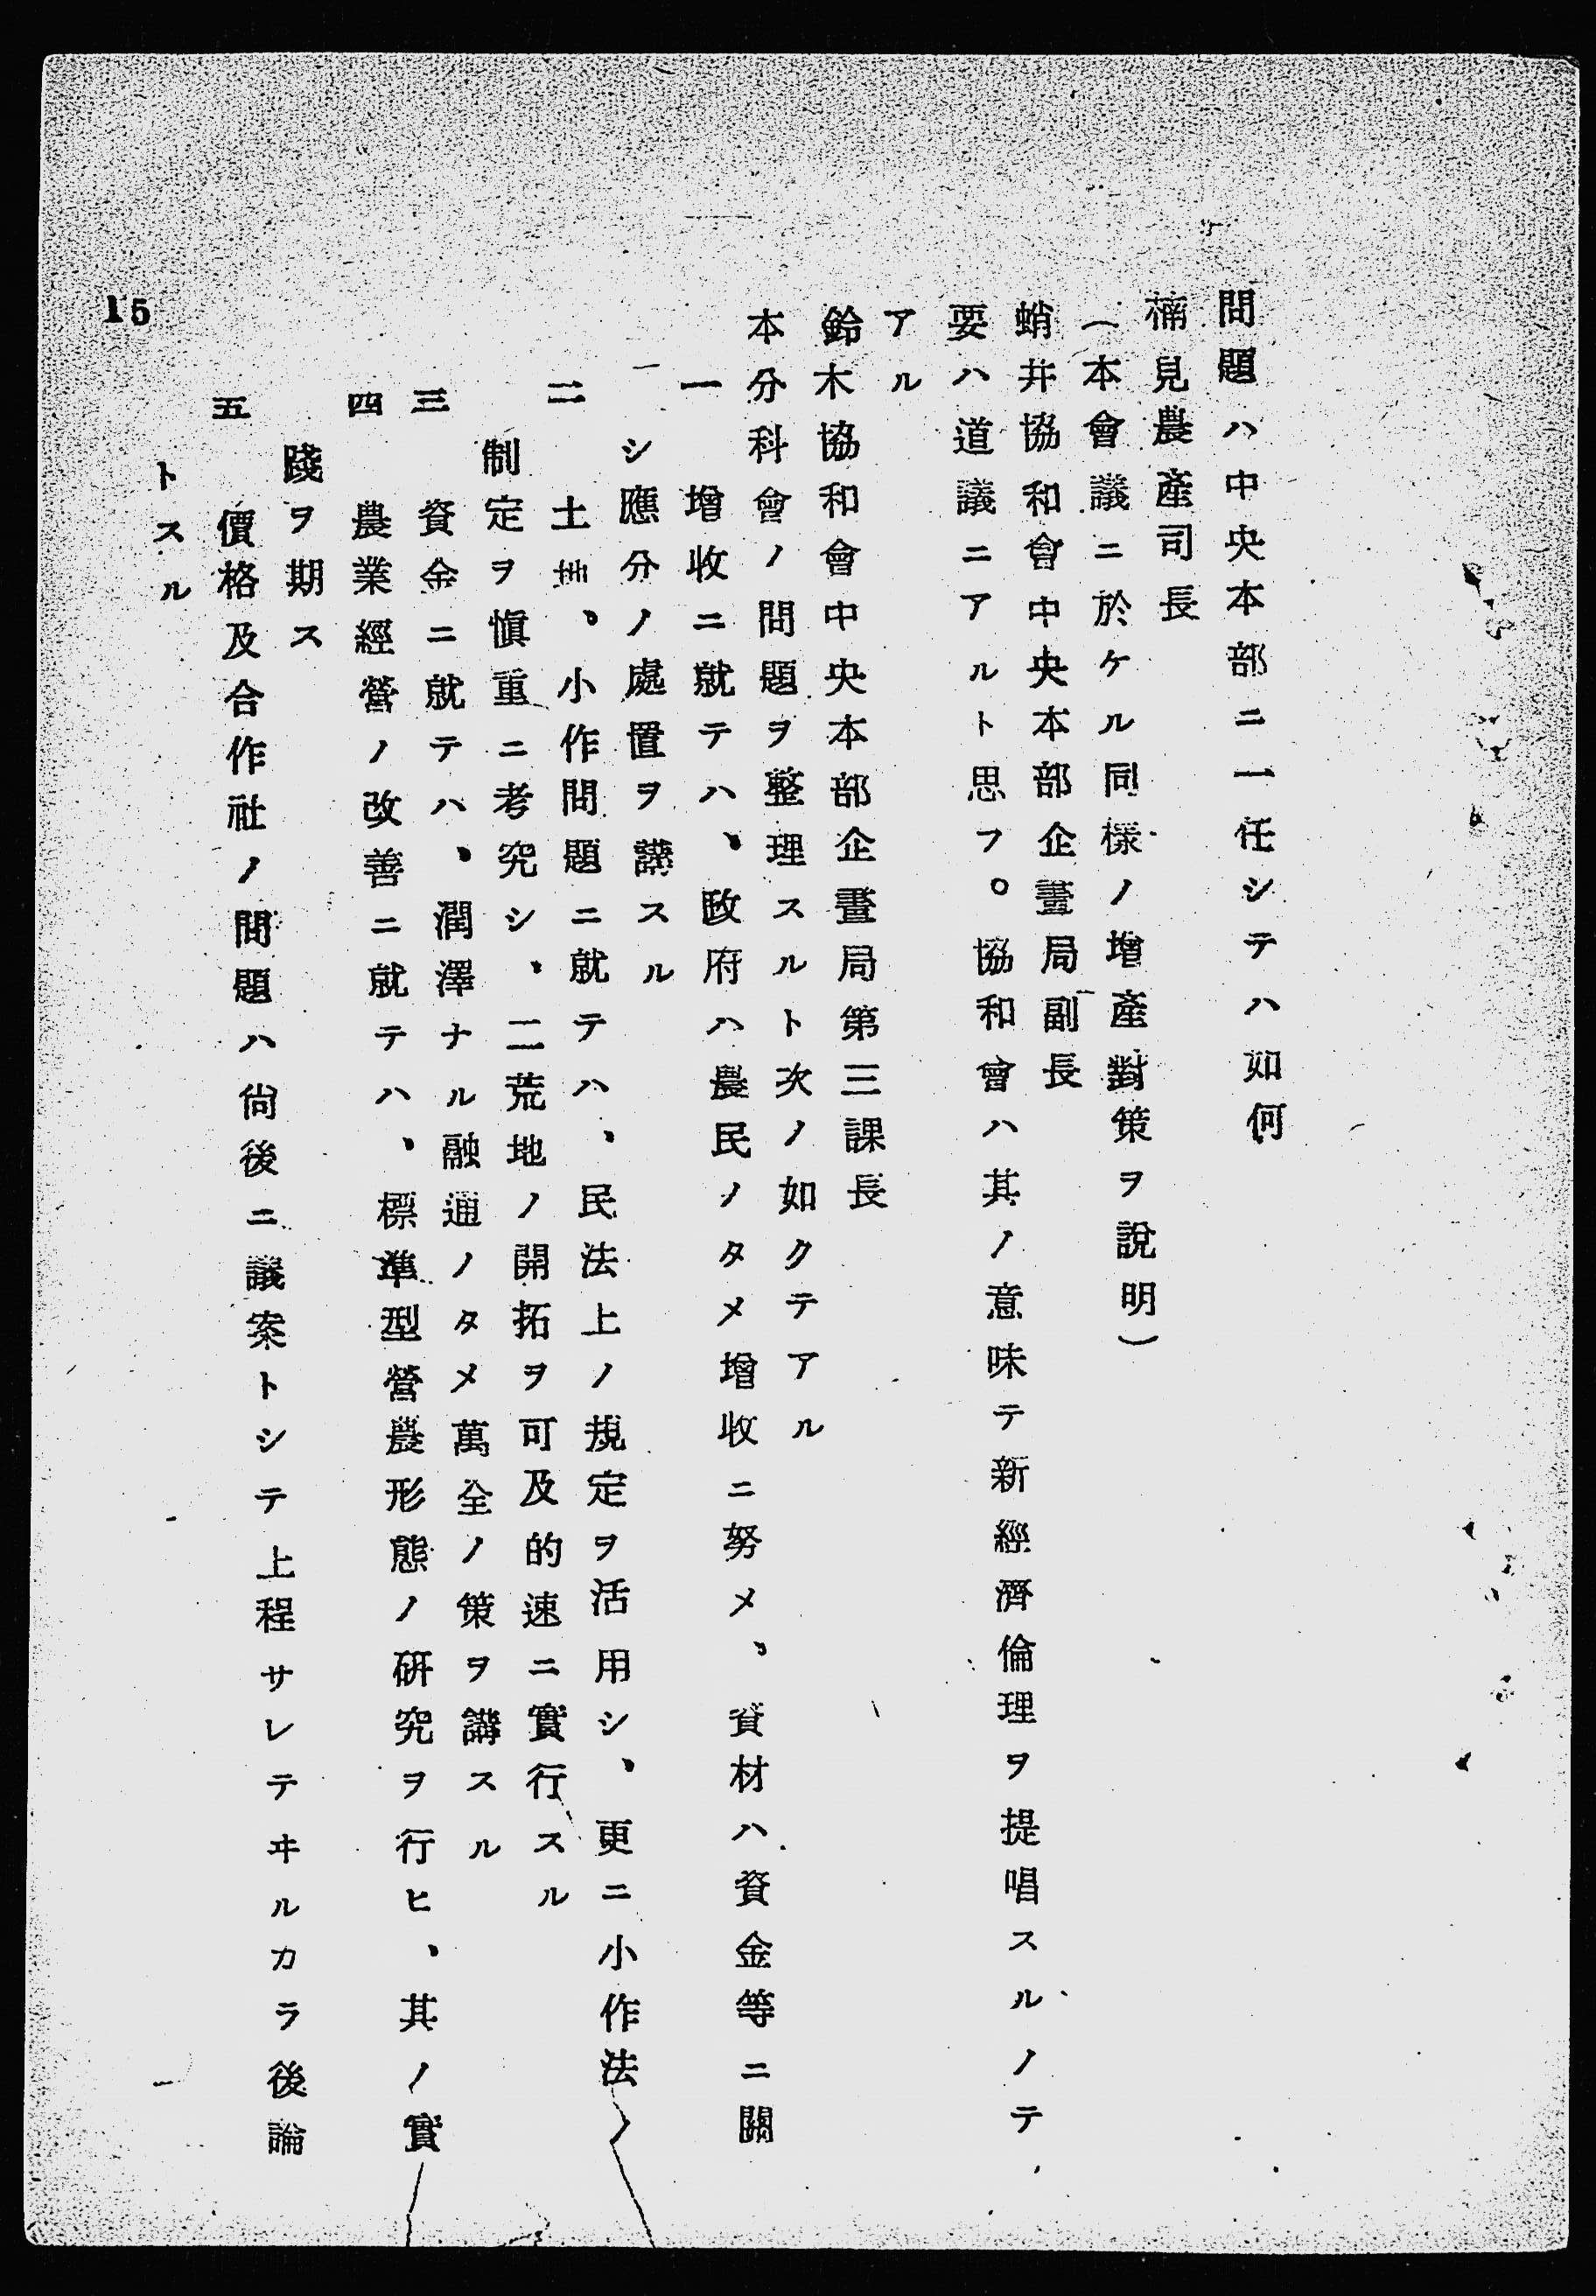 問題ハ中央本部ニ一任シテハ如何
楠見農產司長
（本會議ニ於ケル同樣ノ增產對策ヲ說明）
蛸井協和會中央本部企畫局副長
要ハ道議ニアルト思フ。協和會ハ其ノ意味テ新經濟倫理ヲ提唱スルノテ
アル
鈴木協和會中央本部企畫局第三課長
本分科會ノ問題ヲ整理スルト次ノ如クテアル
一 增收ニ就テハ、政府ハ農民ノタメ增收ニ努メ、資材ハ資金等ニ關
シ應分ノ處置ヲ講スル
二 土地、小作問題ニ就テハ、民法上ノ規定ヲ活用シ、更ニ小作法ノ
制定ヲ愼重ニ考究シ、二荒地ノ開拓ヲ可及的速ニ實行スル
三 資金ニ就テハ、潤澤ナル融通ノタメ萬全ノ策ヲ講スル
四 農業經營ノ改善ニ就テハ、標準型營農形態ノ研究ヲ行ヒ、其ノ實
踐ヲ期ス
五 價格及合作社ノ問題ハ尙後ニ議案トシテ上程サレテヰルカラ後論
トスル
15